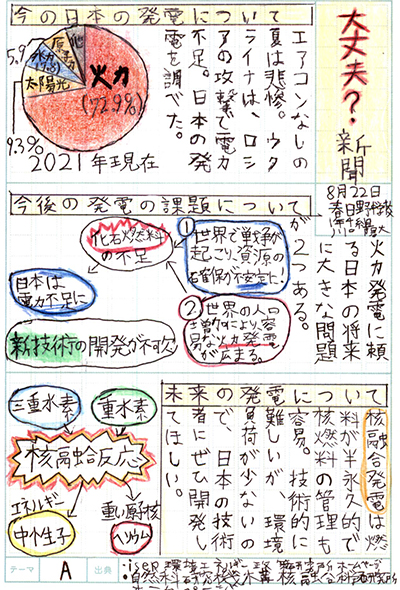 大丈夫?
新聞
8月22日
春日野学校
今の日本の発電について
エアコンなしの
夏は悲惨。ウク
ライナは、ロシ
アの攻撃で電力
不足。日本の発
電を調べた。
他
原子力
水力
太陽光
火力
(72.9%)
5.9
9.3%
2021年現在
今後の発電の課題について
火力発電に頼
る日本の将来
に大きな問題
が2つある。
①世界で戦争が
起こり、資源の
確保が不安定に!
②世界の人口
増加により、容
易な火力発電
が広まる。
化石燃料
の不足
日本は
電力不足に
新技術の開発が不可欠
未来の発電について
核融合発電は燃
料が半永久的で
核燃料の管理も
容易。技術的に
難しいが、環境
負荷が少ないの
で、日本の技術
者にぜひ開発し
てほしい。
三重水素
重水素
核融合反応
エネルギー
中性子
重い原子核
ヘリウム
テーマ
A
出典
・isep 環境エネルギー政策研究所 ホームページ